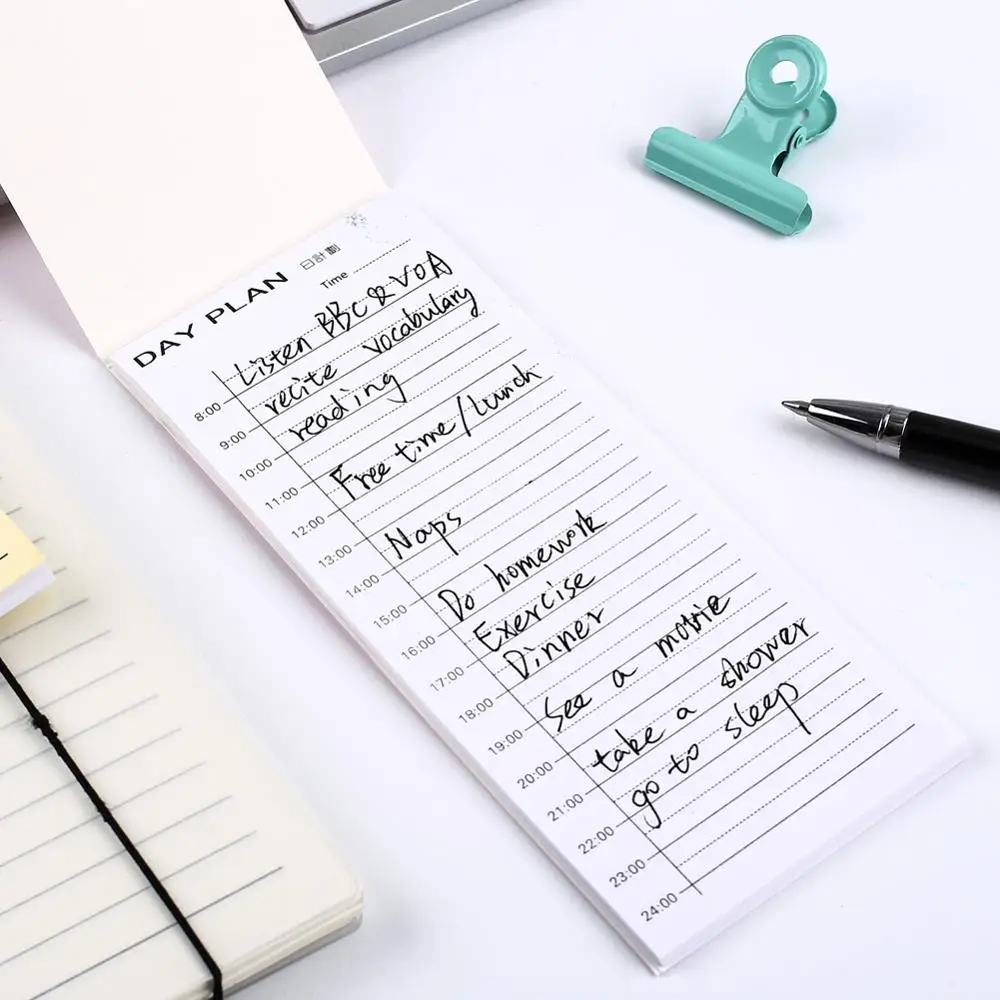 DAY PLAN 日計劃
Time
Listen BBC & VOA
8:00
recite vocabulary
9:00
reading
10:00
11:00
Free time/Lunch
12:00
13:00
Naps
14:00
15:00
Do homework
16:00
Exercise
17:00
Dinner
18:00
19:00
See a movie
20:00
take a shower
21:00
go to sleep
22:00
23:00
24:00